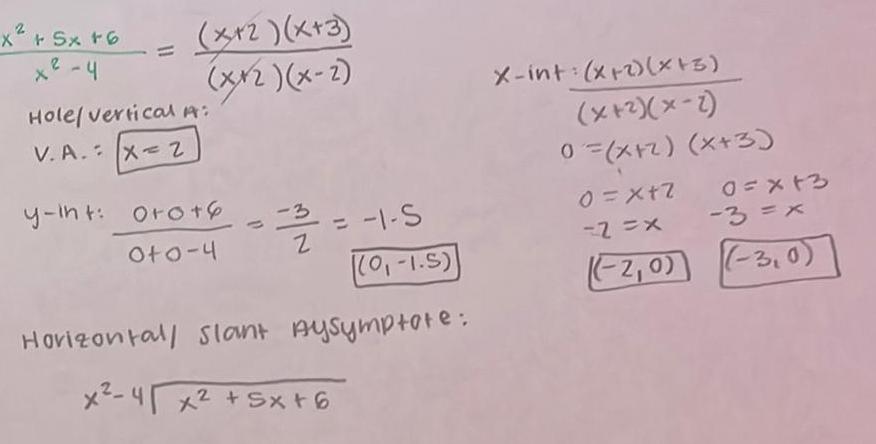 x² + 5x + 6 / x² - 4 = (x+2)(x+3) / (x+2)(x-2)
Hole/vertical A:
V.A.: x = 2
y-int: 0+0+6 / 0+0-4 = -3/2 = -1.5
(0, -1.5)
x-int: (x+2)(x+3) / (x+2)(x-2)
0 = (x+2) (x+3)
0 = x+2 0 = x+3
-2 = x -3 = x
(-2, 0) (-3, 0)
Horizontal/ slant Aysymptote:
x²-4 ⟌ x² + 5x + 6